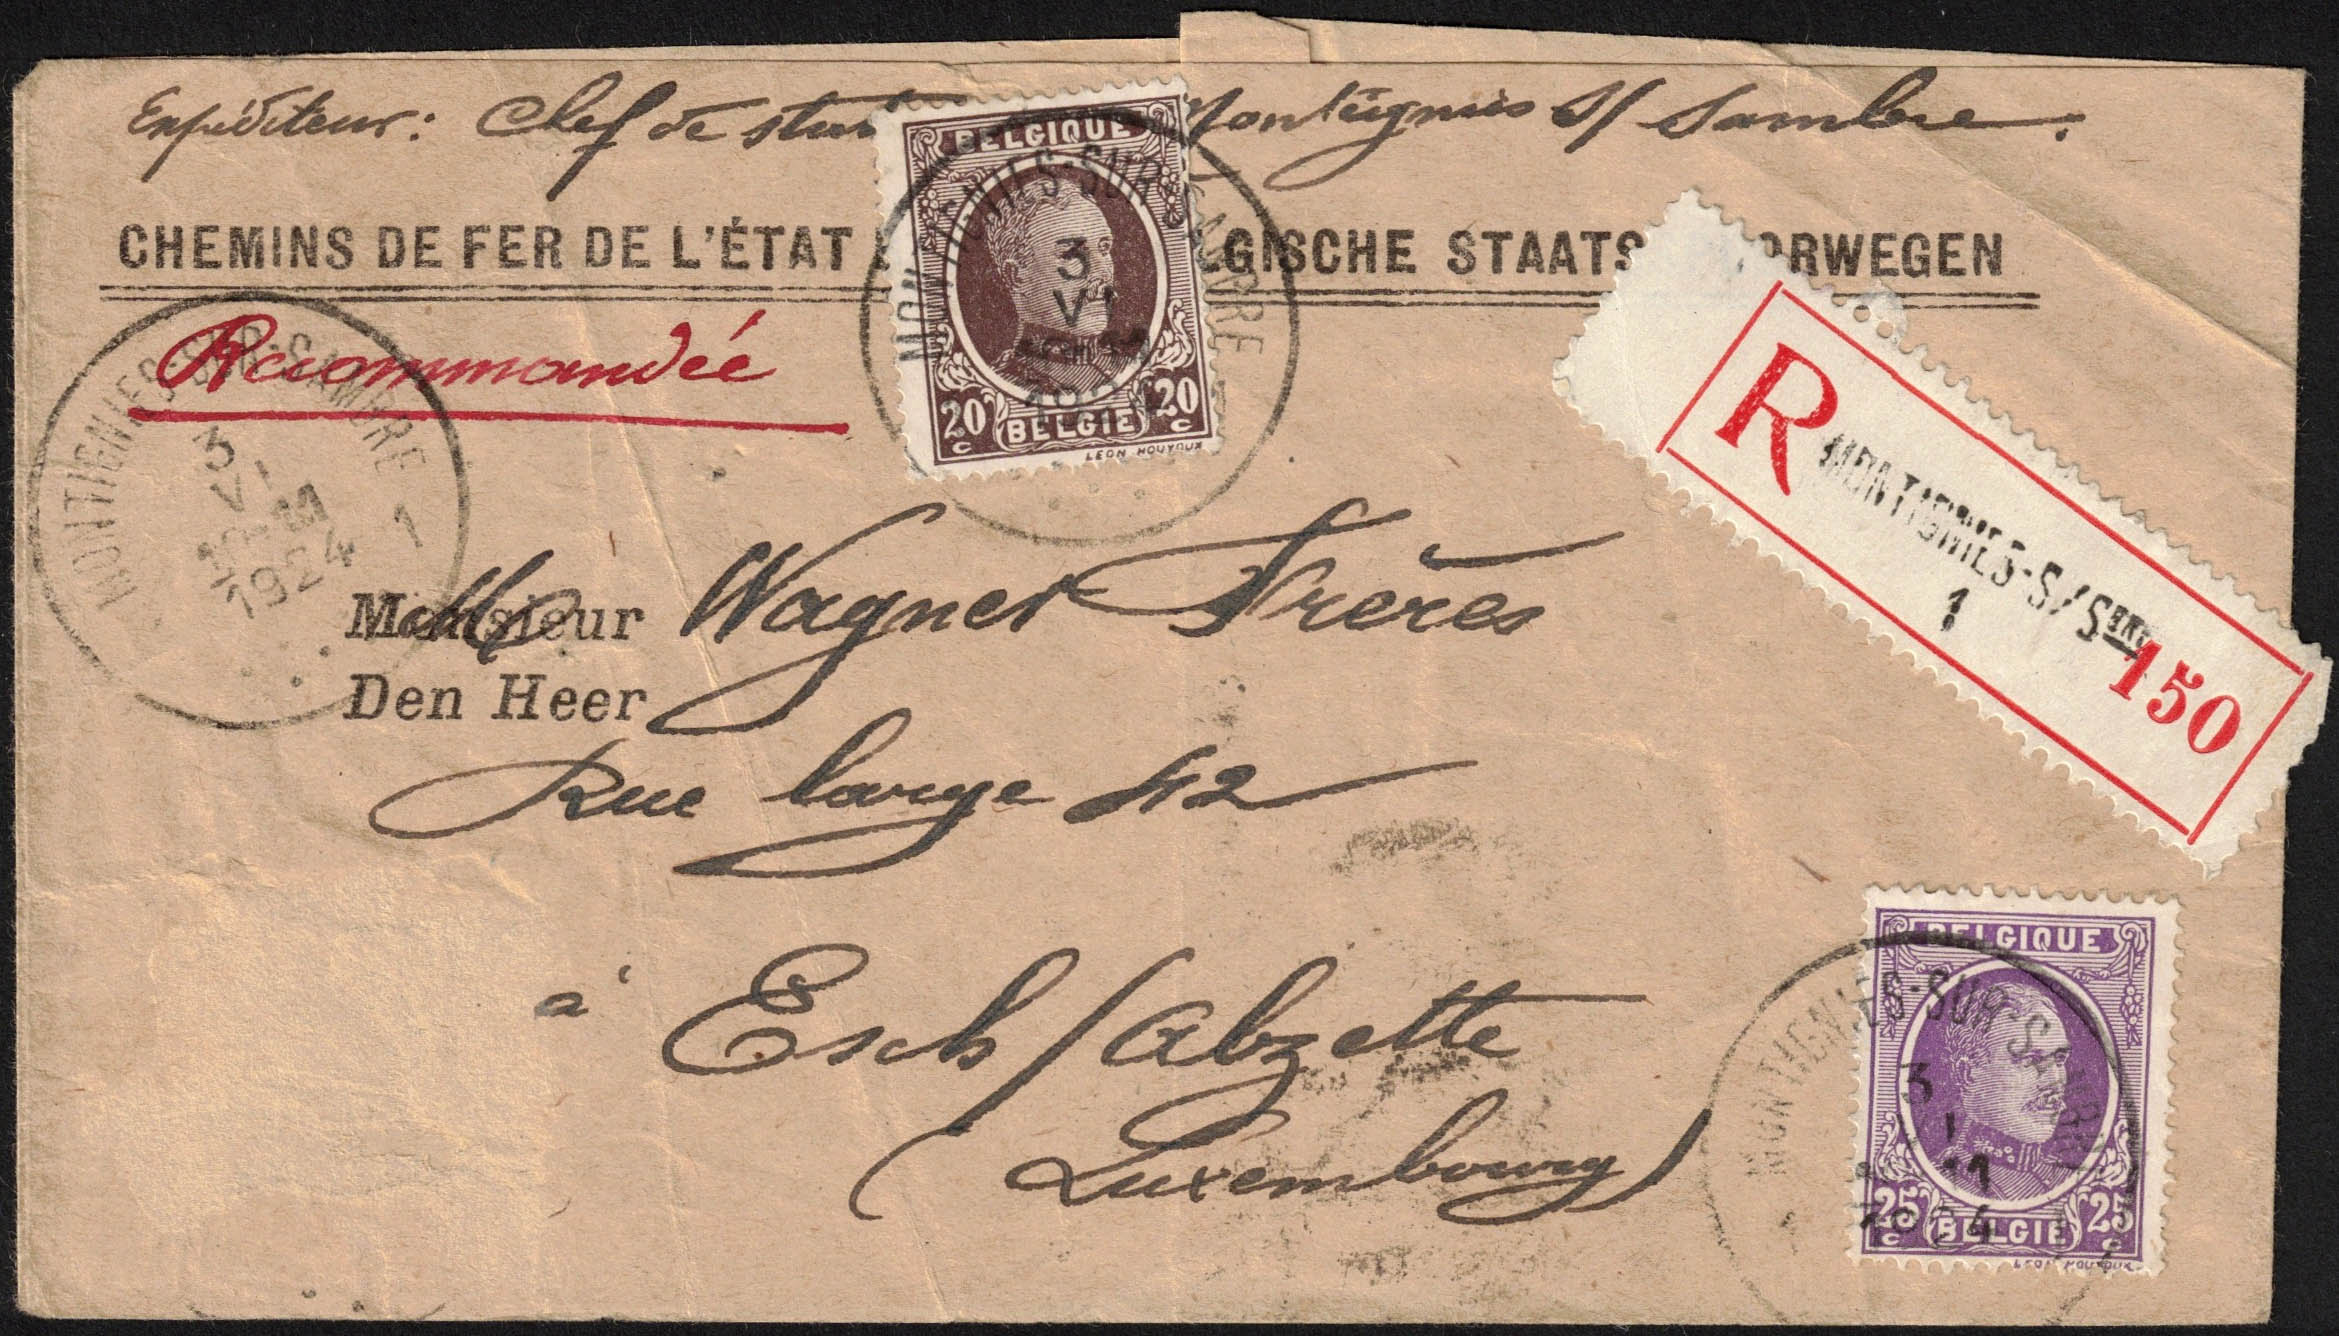 Expéditeur: Chef de stat Montignies s/ Sambre.
CHEMINS DE FER DE L'ÉTAT LGISCHE STAATS ORWEGEN
Recommandée
BELGIQUE
20 c 20 c
BELGIË
LEON HOUYOUX
MONTIGNIES-SUR-SAMBRE
3
VI
MONTIGNIES-SUR-SAMBRE 1
3
VI
1924
R MONTIGNIES-S/SBRE 150
1
Monsieur Wagner Frères
Den Heer
Rue large 42
à Esch/Alzette
(Luxembourg)
BELGIQUE
25 c 25 c
BELGIË
LEON HOUYOUX
MONTIGNIES-SUR-SAMBRE
3
1924